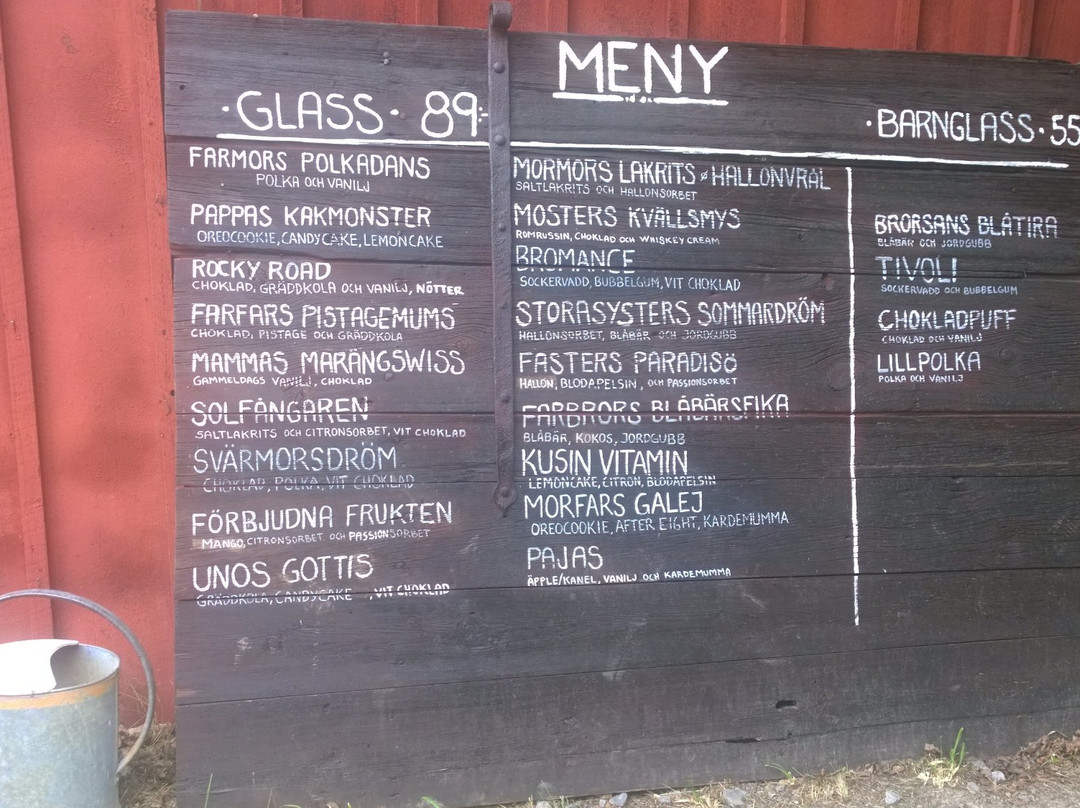 MENY
·GLASS· 89:-
FARMORS POLKADANS
POLKA OCH VANILJ
PAPPAS KAKMONSTER
OREOCOOKIE, CANDYCAKE, LEMONCAKE
ROCKY ROAD
CHOKLAD, GRÄDDKOLA OCH VANILJ, NÖTTER
FARFARS PISTAGEMUMS
CHOKLAD, PISTAGE OCH GRÄDDKOLA
MAMMAS MARÄNGSWISS
GAMMELDAGS VANILJ, CHOKLAD
SOLFÅNGAREN
SALTLAKRITS OCH CITRONSORBET, VIT CHOKLAD
SVÄRMORSDRÖM
CHOKLAD, POLKA, VIT CHOKLAD
FÖRBJUDNA FRUKTEN
MANGO, CITRONSORBET OCH PASSIONSORBET
UNOS GOTTIS
GRÄDDKOLA, CANDYCAKE , VIT CHOKLAD
MORMORS LAKRITS & HALLONVRÅL
SALTLAKRITS OCH HALLONSORBET
MOSTERS KVÄLLSMYS
ROMRUSSIN, CHOKLAD OCH WHISKEY CREAM
BROMANCE
SOCKERVADD, BUBBELGUM, VIT CHOKLAD
STORASYSTERS SOMMARDRÖM
HALLONSORBET, BLÅBÄR OCH JORDGUBB
FASTERS PARADISÖ
HALLON, BLODAPELSIN, OCH PASSIONSORBET
FARBRORS BLÅBÄRSFIKA
BLÅBÄR, KOKOS, JORDGUBB
KUSIN VITAMIN
LEMONCAKE, CITRON, BLODAPELSIN
MORFARS GALEJ
OREOCOOKIE, AFTER EIGHT, KARDEMUMMA
PAJAS
ÄPPLE/KANEL, VANILJ OCH KARDEMUMMA
·BARNGLASS· 55
BRORSANS BLÅTIRA
BLÅBÄR OCH JORDGUBB
TIVOLI
SOCKERVADD OCH BUBBELGUM
CHOKLADPUFF
CHOKLAD OCH VANILJ
LILLPOLKA
POLKA OCH VANILJ